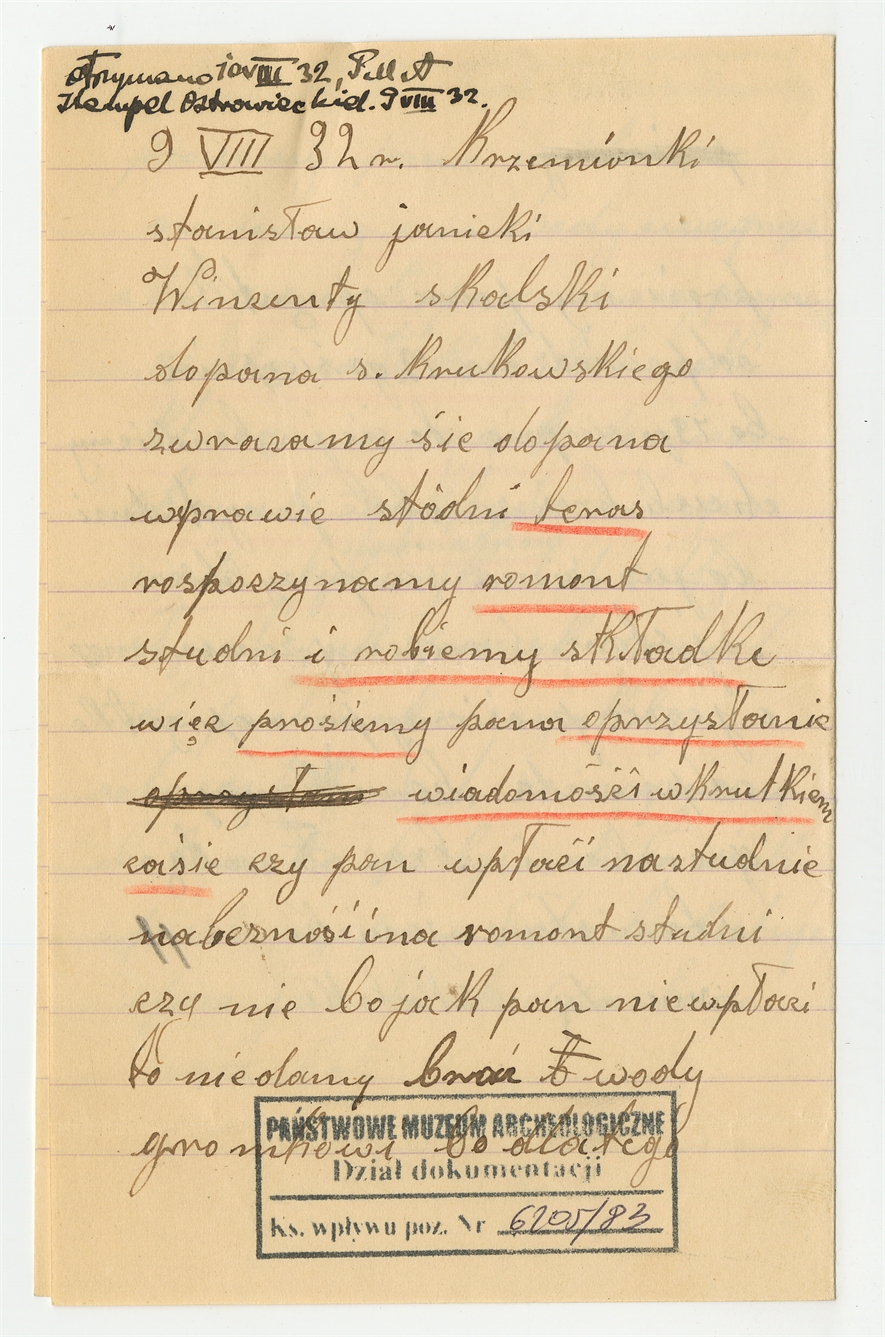 Otrzymano 10 VIII 32, P.M.A
Stempel Ostrowiec Kiel. 9 VIII 32.
9 VIII 32 r. Krzemionki
stanisław janicki
Winsenty skalski
dopana s. Krukowskiego
zwracamy śie dopana
wprawie stódni teras
rospoczynamy romont
studni i robiemy skŁadke
więc prośiemy pana oprzysłanie
wiadomośći wkrutkiem
caśie czy pan wpłaći nastudnie
nabezność ina romont studni
czy nie bo jak pan niewpłaci
to niedamy brać wody
gromkowi bo dlatego
PAŃSTWOWE MUZEUM ARCHEOLOGICZNE
Dział dokumentacji
Ks. wpływu poz. Nr 6205/83